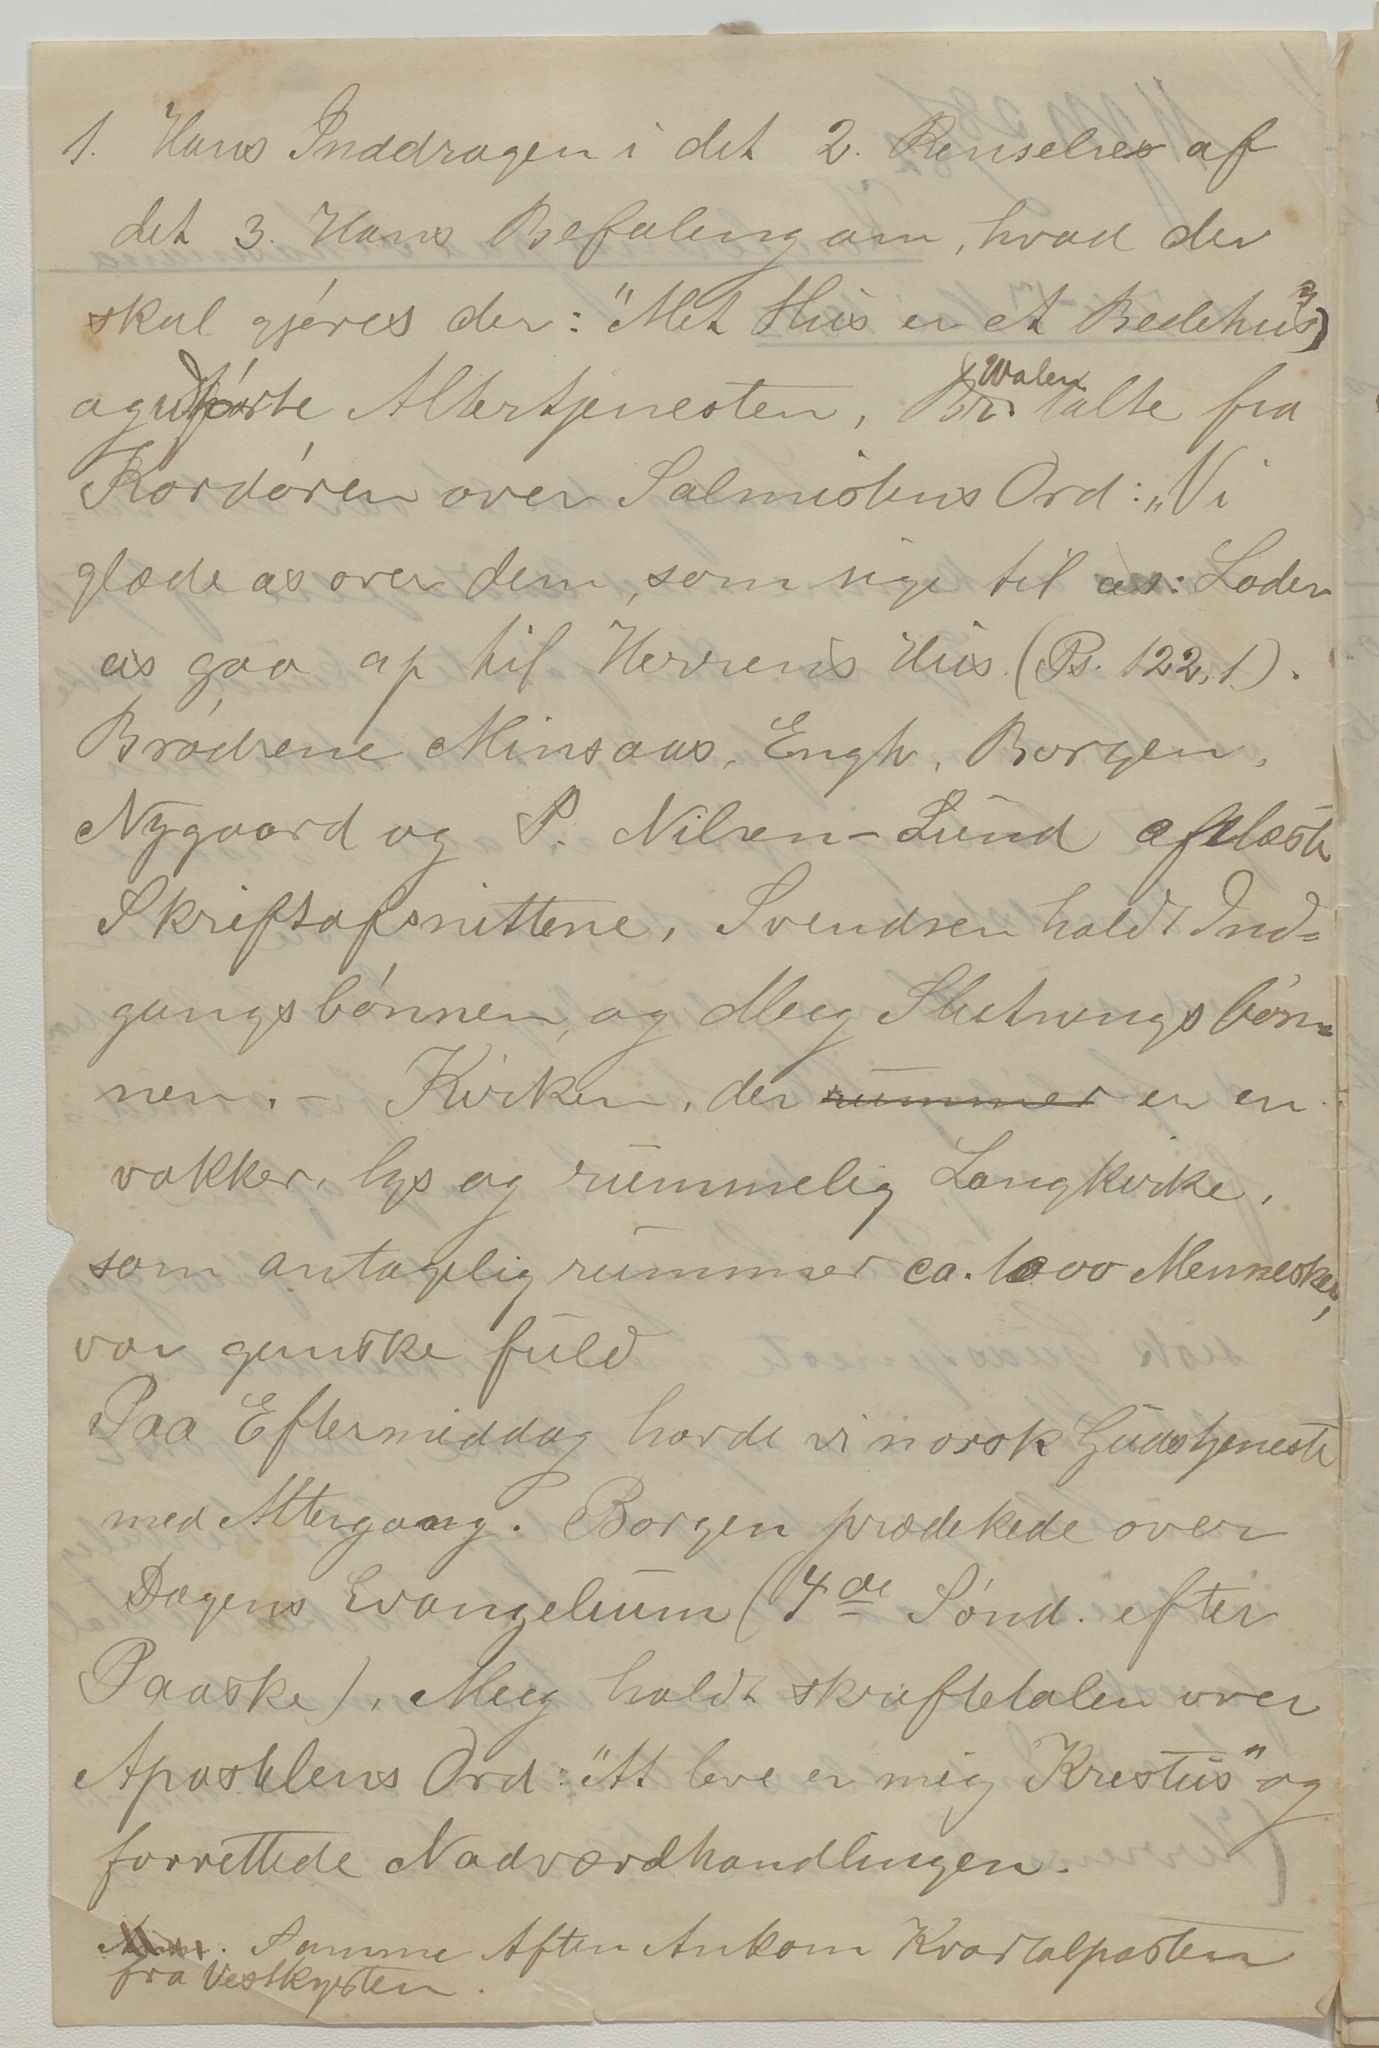 1. Hans Inddragen i det 2. Renselses af
det 3. Hans Befaling om, hvad der
skal gjøres der: "Mit Hus er et Bedehus"
og udførte Altertjenesten, Br. Walen talte fra
Kordøren over Salmistens Ord: „Vi
glæde os over dem, som sige til os: Lader
os gaa op til Herrens Hus (Ps. 122,1).
Brødrene Minsaas, Engh, Borgen,
Nygaard og P. Nilsen-Lund oplæste
Skriftafsnittene, Svendsen holdt Ind-
gangsbønnen og Meeg Slutningsbøn-
nen. – Kirken, der rummer er en
vakker, lys og rummelig Langkirke,
som antagelig rummer ca. 1000 Mennesker,
var ganske fuld
Paa Eftermiddag havde vi norsk Gudstjeneste
med Altergang. Borgen prædikede over
Dagens Evangelium (4de Sønd. efter
Paaske), Meeg holdt skriftetalen over
Apostelens Ord: "At leve er mig Kristus" og
forrettede Nadverdhandlingen.
Samme Aften Ankom Kvartalposten
fra Vestkysten.